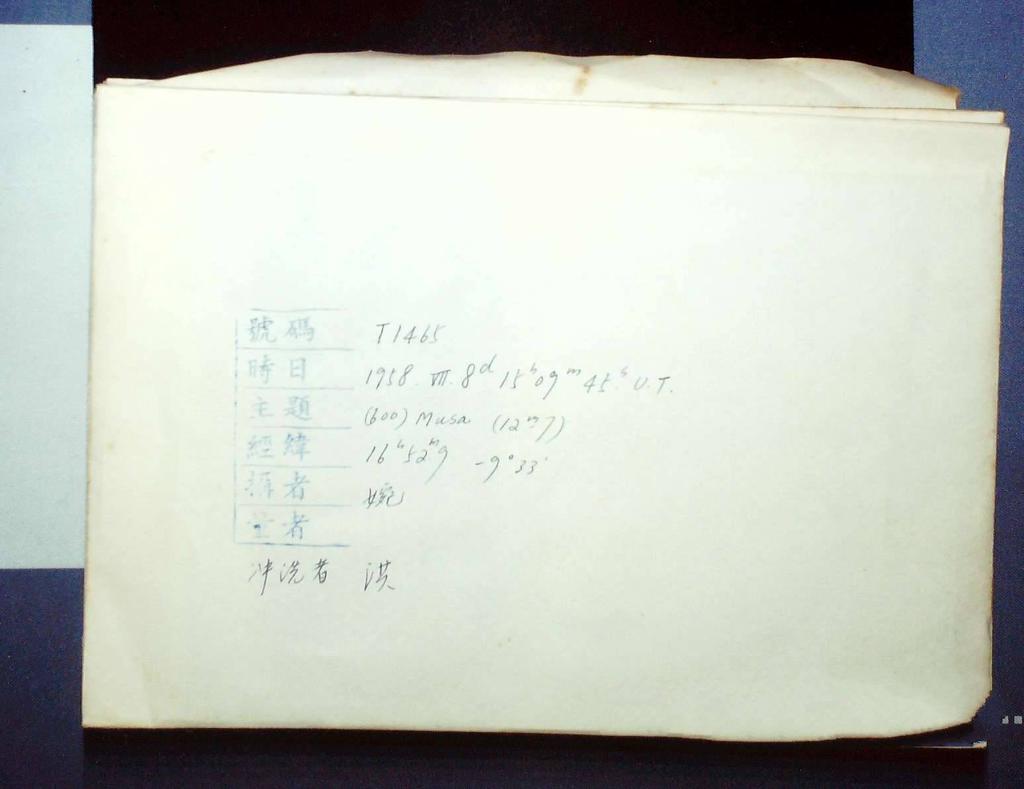 號碼 T1465
時日 1958. VII. 8ᵈ 15ʰ09ᵐ45ˢ U.T.
主題 (600) Musa (12ᵐ7)
經緯 16ʰ52ᵐ9 -9°33'
攝者 婉
量者
冲洗者 洪